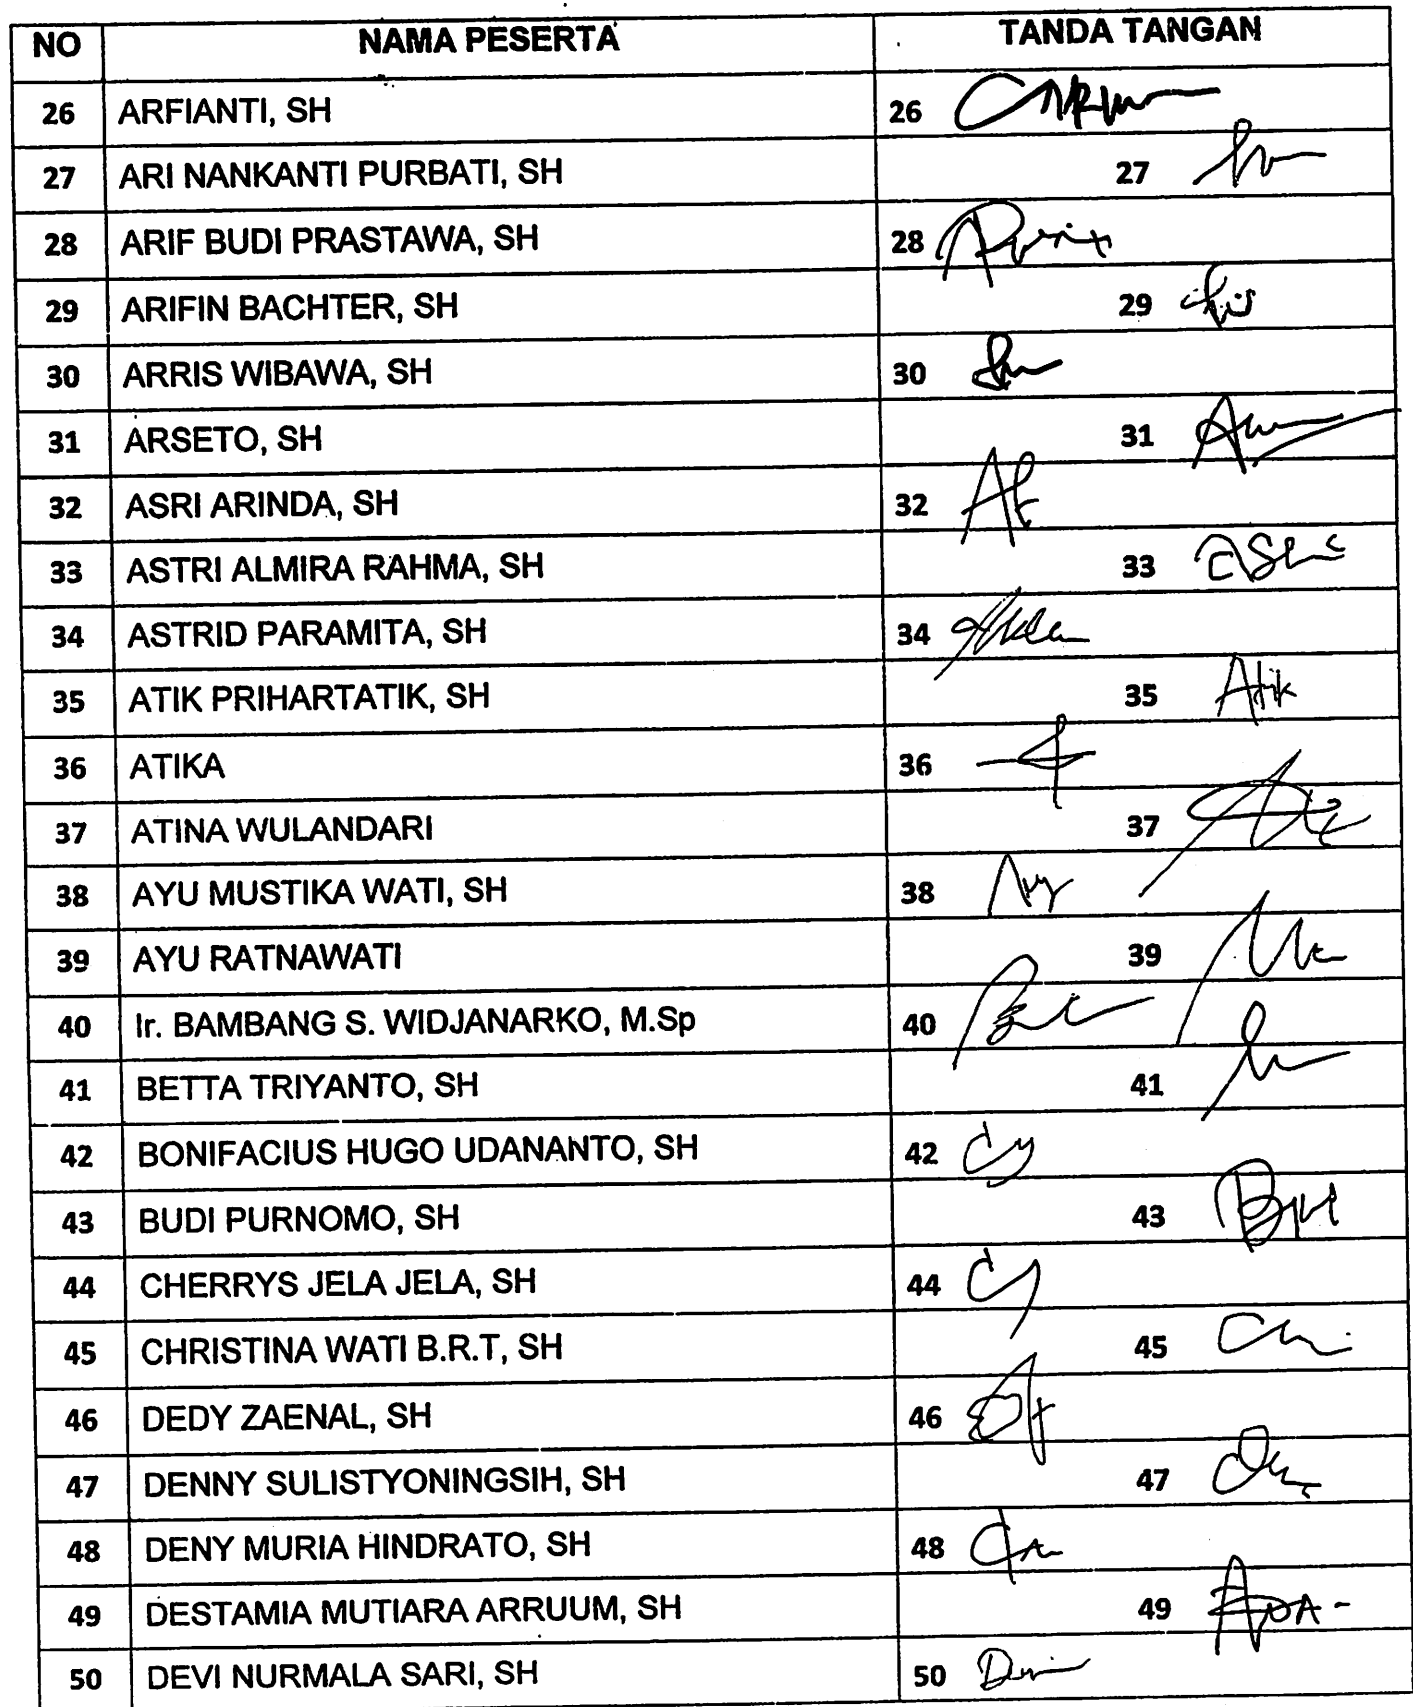 NO NAMA PESERTA TANDA TANGAN
26 ARFIANTI, SH 26
27 ARI NANKANTI PURBATI, SH 27
28 ARIF BUDI PRASTAWA, SH 28
29 ARIFIN BACHTER, SH 29
30 ARRIS WIBAWA, SH 30
31 ARSETO, SH 31
32 ASRI ARINDA, SH 32
33 ASTRI ALMIRA RAHMA, SH 33
34 ASTRID PARAMITA, SH 34
35 ATIK PRIHARTATIK, SH 35 Atik
36 ATIKA 36
37 ATINA WULANDARI 37
38 AYU MUSTIKA WATI, SH 38
39 AYU RATNAWATI 39
40 Ir. BAMBANG S. WIDJANARKO, M.Sp 40
41 BETTA TRIYANTO, SH 41
42 BONIFACIUS HUGO UDANANTO, SH 42
43 BUDI PURNOMO, SH 43
44 CHERRYS JELA JELA, SH 44
45 CHRISTINA WATI B.R.T, SH 45
46 DEDY ZAENAL, SH 46
47 DENNY SULISTYONINGSIH, SH 47
48 DENY MURIA HINDRATO, SH 48
49 DESTAMIA MUTIARA ARRUUM, SH 49
50 DEVI NURMALA SARI, SH 50